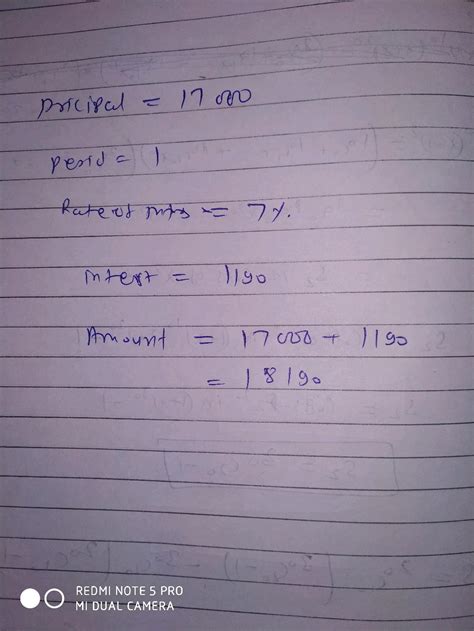 principal = 17000
period = 1
Rate of intrs = 7%.
interst = 1190
Amount = 17000 + 1190
= 18190
REDMI NOTE 5 PRO
MI DUAL CAMERA